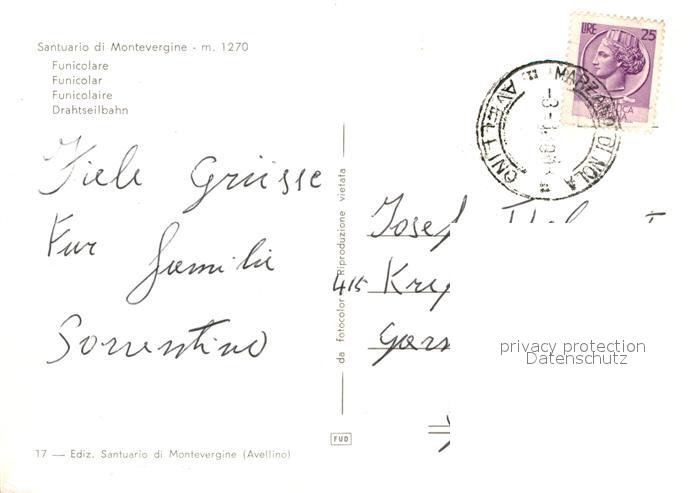 Santuario di Montevergine - m. 1270
Funicolare
Funicolar
Funicolaire
Drahtseilbahn
Viele Grüsse
Fur familie
Sorrentino
17 — Ediz. Santuario di Montevergine (Avellino)
da fotocolor Riproduzione vietata
FUD
LIRE 25
MARZANO DI NOLA
AVELLINO
Josef
415 Kre
privacy protection
Datenschutz